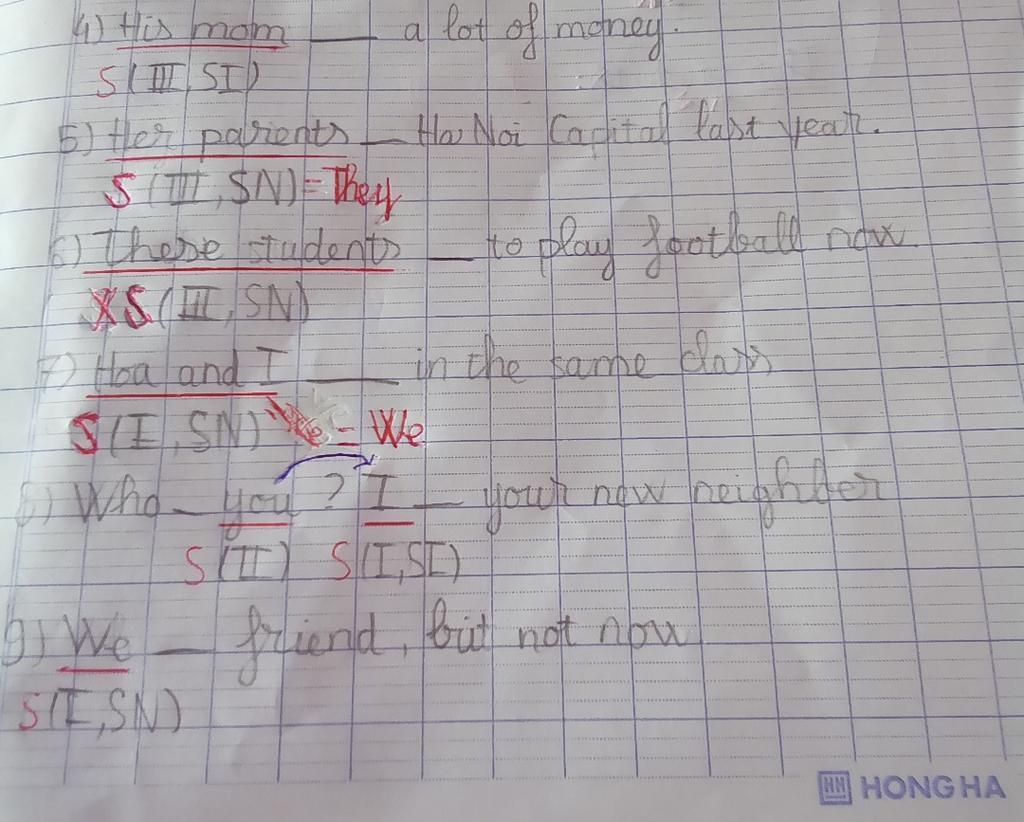 4) His mom ___ a lot of money.
S (III, SI)
5) Her parients __ Ha Noi Capital last year.
S (III, SN) = They
6) These students __ to play football now
S (III, SN)
7) Hoa and I ___ in the same class
S (I, SN) We = We
8) Who _ you ? I _ your now neighber
S (II) S (I, SI)
9) We __ friend, but not now
S (I, SN)
HH HONG HA